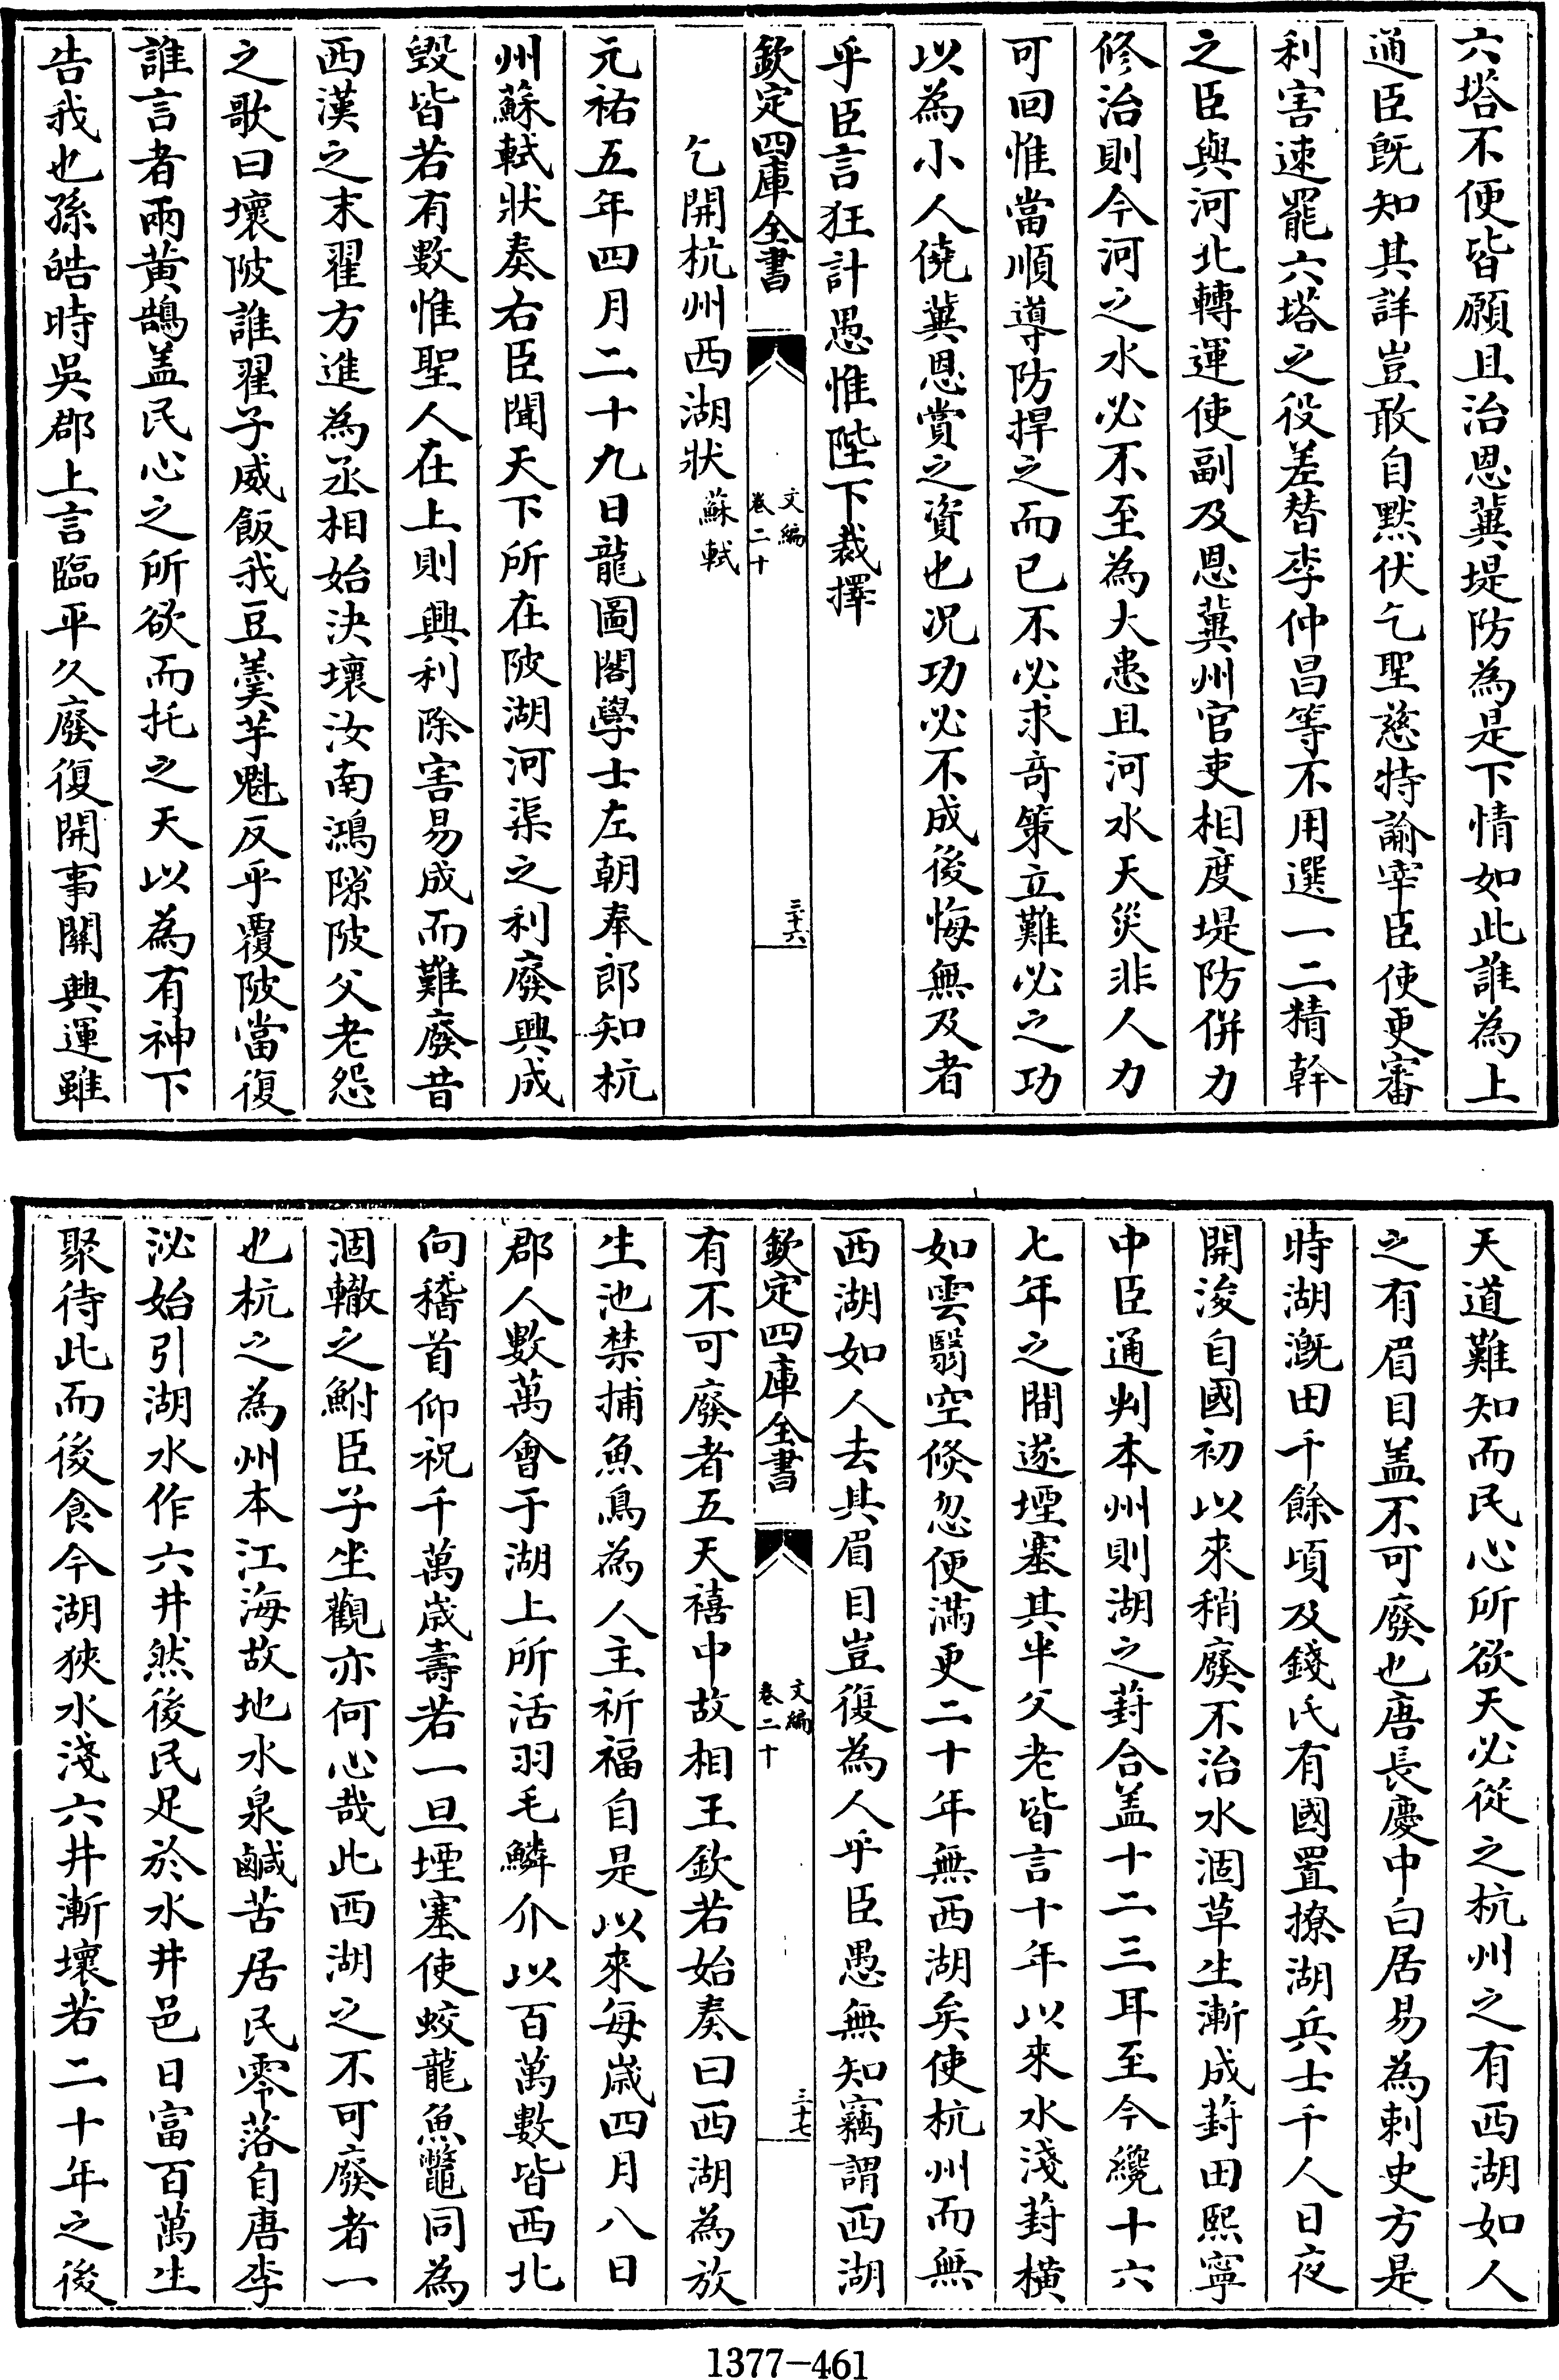 六塔不便皆願且治恩冀堤防為是下情如此誰為上
通臣既知其詳豈敢自黙伏乞聖慈特諭宰臣使更審
利害速罷六塔之役差替李仲昌等不用選一二精幹
之臣與河北轉運使副及恩冀州官吏相度堤防併力
修治則今河之水必不至為大患且河水天災非人力
可回惟當順導防捍之而已不必求奇策立難必之功
以為小人僥冀恩賞之資也况功必不成後悔無及者
乎臣言狂計愚惟陛下裁擇
欽定四庫全書
文編
卷二十
三十六
乞開杭州西湖狀 蘇軾
元祐五年四月二十九日龍圖閣學士左朝奉郎知杭
州蘇軾狀奏右臣聞天下所在陂湖河渠之利廢興成
毀皆若有數惟聖人在上則興利除害易成而難廢昔
西漢之末翟方進為丞相始決壞汝南鴻隙陂父老怨
之歌曰壞陂誰翟子威飯我豆羮芋魁反乎覆陂當復
誰言者兩黃鵠盖民心之所欲而托之天以為有神下
告我也孫皓時吳郡上言臨平久廢復開事關興運雖
天道難知而民心所欲天必從之杭州之有西湖如人
之有眉目盖不可廢也唐長慶中白居易為刺史方是
時湖溉田千餘頃及錢氏有國置撩湖兵士千人日夜
開浚自國初以來稍廢不治水涸草生漸成葑田熙寧
中臣通判本州則湖之葑合盖十二三耳至今纔十六
七年之間遂堙塞其半父老皆言十年以來水淺葑橫
如雲翳空倐忽便滿更二十年無西湖矣使杭州而無
西湖如人去其眉目豈復為人乎臣愚無知竊謂西湖
欽定四庫全書
文編
卷二十
三十七
有不可廢者五天禧中故相王欽若始奏曰西湖為放
生池禁捕魚鳥為人主祈福自是以來每歲四月八日
郡人數萬會于湖上所活羽毛鱗介以百萬數皆西北
向稽首仰祝千萬歲壽若一旦堙塞使蛟龍魚鼈同為
涸轍之鮒臣子坐觀亦何心哉此西湖之不可廢者一
也杭之為州本江海故地水泉鹹苦居民零落自唐李
泌始引湖水作六井然後民足於水井邑日富百萬生
聚待此而後食今湖狹水淺六井漸壞若二十年之後
1377-461